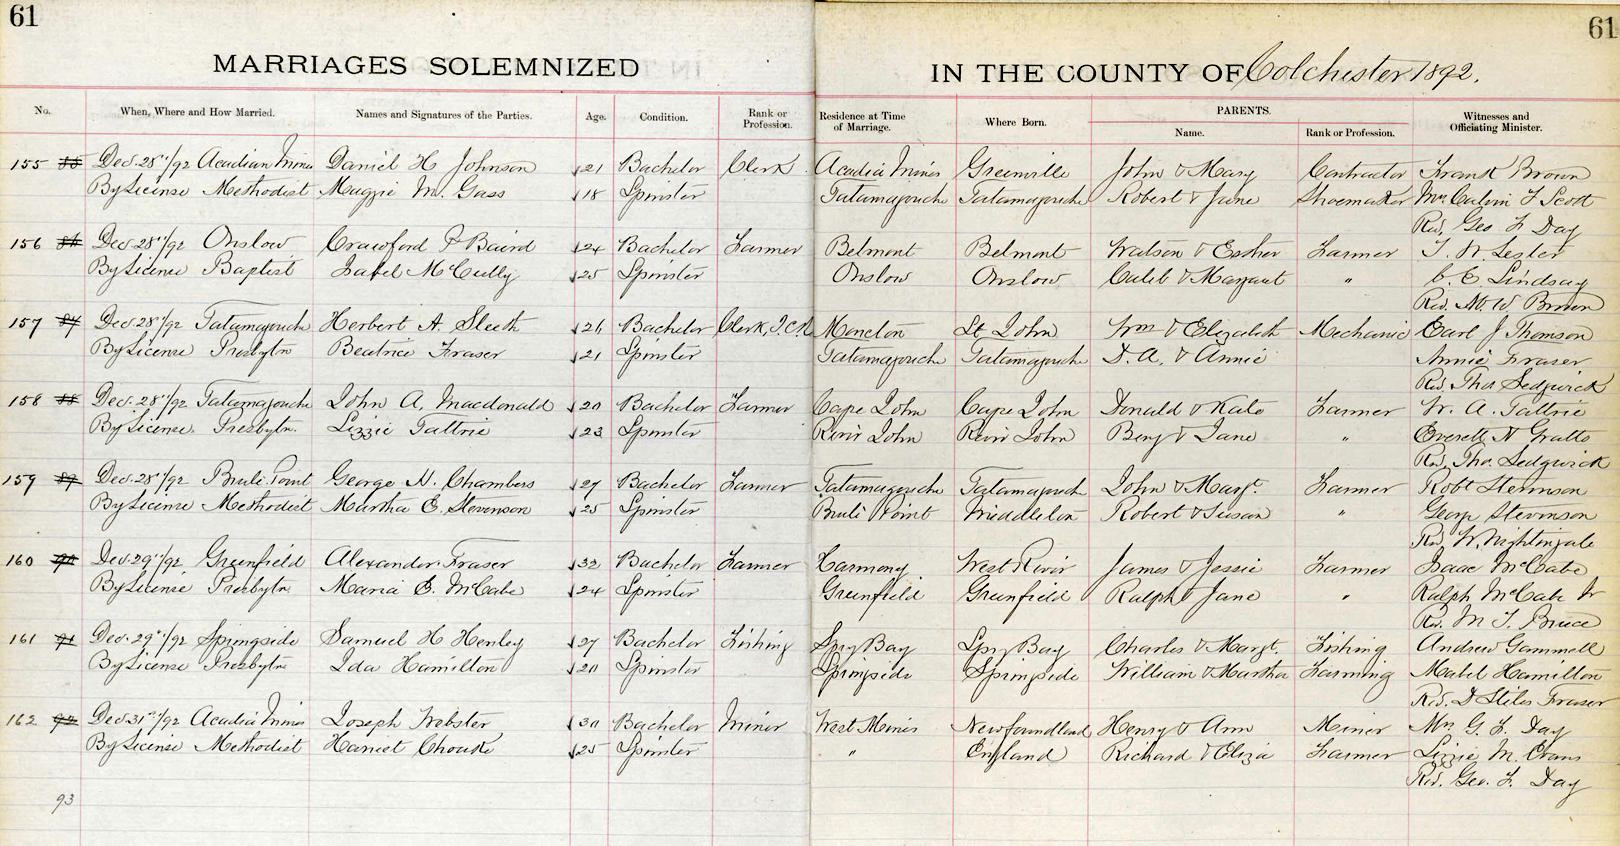 61
61
MARRIAGES SOLEMNIZED IN THE COUNTY OF Colchester 1892.
No. When, Where and How Married. Names and Signatures of the Parties. Age. Condition. Rank or Profession. Residence at Time of Marriage. Where Born. PARENTS. Name. Rank or Profession. Witnesses and Officiating Minister.
155 85 Dec. 28"/92 Acadian Mines Daniel H Johnson 21 Bachelor Clerk Acadia Mines Greenville John & Mary Contractor Frank Brown
By License Methodist Maggie M. Gass 18 Spinster Tatamagouche Tatamagouche Robert & Jane Shoemaker Mrs Calvin F Scott
Rev. Geo F Day
156 86 Dec. 28"/92 Onslow Crawford P Baird 24 Bachelor Farmer Belmont Belmont Watson & Esther Farmer T. W. Lester
By License Baptist Isabel McCully 25 Spinster Onslow Onslow Caleb & Margaret " C. E Lindsay
Rev. M. W Brown
157 87 Dec. 28"/92 Tatamagouche Herbert A. Sleeth 26 Bachelor Clerk, I.C.R Moncton St John Wm & Elizabeth Mechanic Earl J Thomson
By License Presbytn Beatrice Fraser 21 Spinster Tatamagouche Tatamagouche D. A. & Annie Annie Fraser
Rev. Thos Sedgwick
158 88 Dec. 28"/92 Tatamagouche John A. Macdonald 20 Bachelor Farmer Cape John Cape John Donald & Kate Farmer W. A. Tattrie
By License. Presbytn. Lizzie Tattrie 23 Spinster River John River John Benj & Jane " Everett N Gratto
Rev. Thos. Sedgwick
159 89 Dec. 28"/92 Brule Point George H. Chambers 27 Bachelor Farmer Tatamagouche Tatamagouch John & Margt. Farmer Robt Stevenson
By License Methodist Martha E. Stevenson 25 Spinster Brule Point Middleton Robert & Susan " George Stevenson
Rev. W. Nightingale
160 90 Dec. 29"/92 Greenfield Alexander Fraser 32 Bachelor Farmer Harmony West River James & Jessie Farmer Isaac McCabe
By License Presbytn Maria E. McCabe 24 Spinster Greenfield Greenfield Ralph & Jane " Ralph McCabe Jr
Rev. M. F. Bruce
161 91 Dec. 29"/92 Springside Samuel H Henley 27 Bachelor Fishing Spry Bay Spry Bay Charles & Margt. Fishing Andrew Gammell
By License Presbytn Ida Hamilton 20 Spinster Springside Springside William & Martha Farming Mabel Hamilton
Rev. D Stiles Fraser
162 92 Dec. 31st/92 Acadia Mines Joseph Webster 30 Bachelor Miner West Mines Newfoundland Henry & Ann Miner Mrs G. F. Day
By License Methodist Harriet 25 Spinster " England Richard & Eliza Farmer Lizzie M. Evans
Rev. Geo. F. Day
93